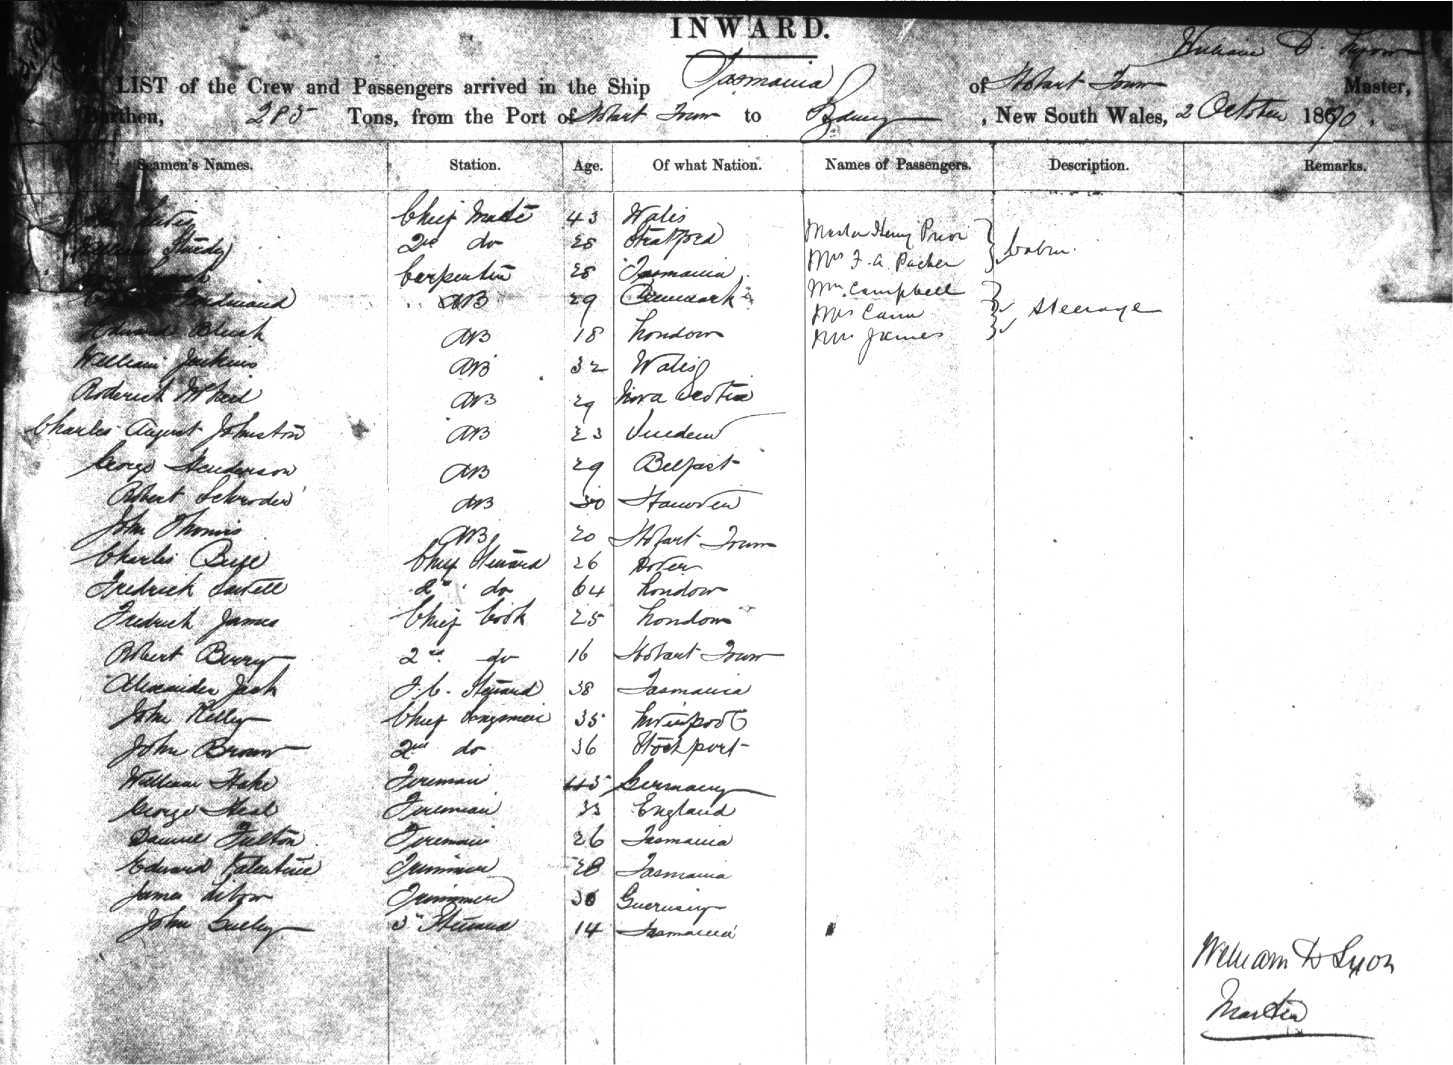 INWARD.
William D. Lyon
LIST of the Crew and Passengers arrived in the Ship Tasmania of Hobart Town Master,
Burthen, 285 Tons, from the Port of Hobart Town to Sydney , New South Wales, 2 October 1870.
Seamen's Names. Station. Age. Of what Nation. Names of Passengers. Description. Remarks.
Chief Mate 43 Wales Master Henry Prior
Sturdy 2nd do 25 Stratford Mrs F. A. Packer Cabin
Carpenter 28 Tasmania
Ferdinand AB 29 Denmark Mr Campbell
Mrs Steerage
Edward AB 18 London Mrs James
William Jenkins AB 32 Wales
Roderick McNeil AB 29 Nova Scotia
Charles August Johnston AB 23
George Henderson AB 29 Belfast
Robert Schroder AB 30 Hanover
John Thomas AB 20 Hobart Town
Charles Chief Steward 26 Dover
Fredrick 2nd do 64 London
Fredrick James Chief Cook 25 London
Robert Berry 2nd do 16 Hobart Town
Alexander Jack F. C. Steward 38 Tasmania
John Kelly Chief 35 Liverpool
John Brown 2nd do 36 Stockport
William Hake Fireman 45 Germany
George Fireman 33 England
Daniel Fulton Fireman 26 Tasmania
Edward Valentine Trimmer 28 Tasmania
James Trimmer 30 Guernsey
John 3rd Steward 14 Tasmania
William D Lyon
Master